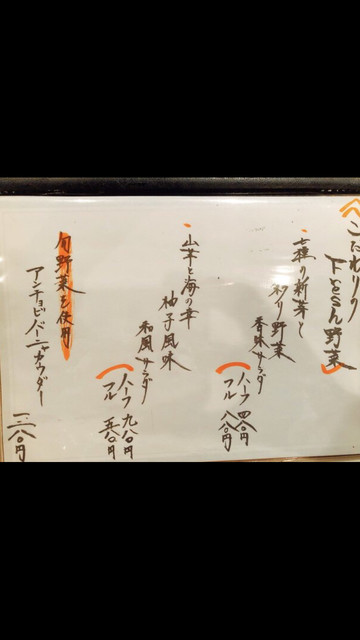 こだわりの
Fresh野菜
七種の新芽と
彩り野菜
香味サラダ
ハーフ
フル 八八〇円
山芋と海の幸
柚子風味
和風サラダ
ハーフ 九八〇円
フル
旬野菜を使用
アンチョビバーニャカウダー
一二八〇円